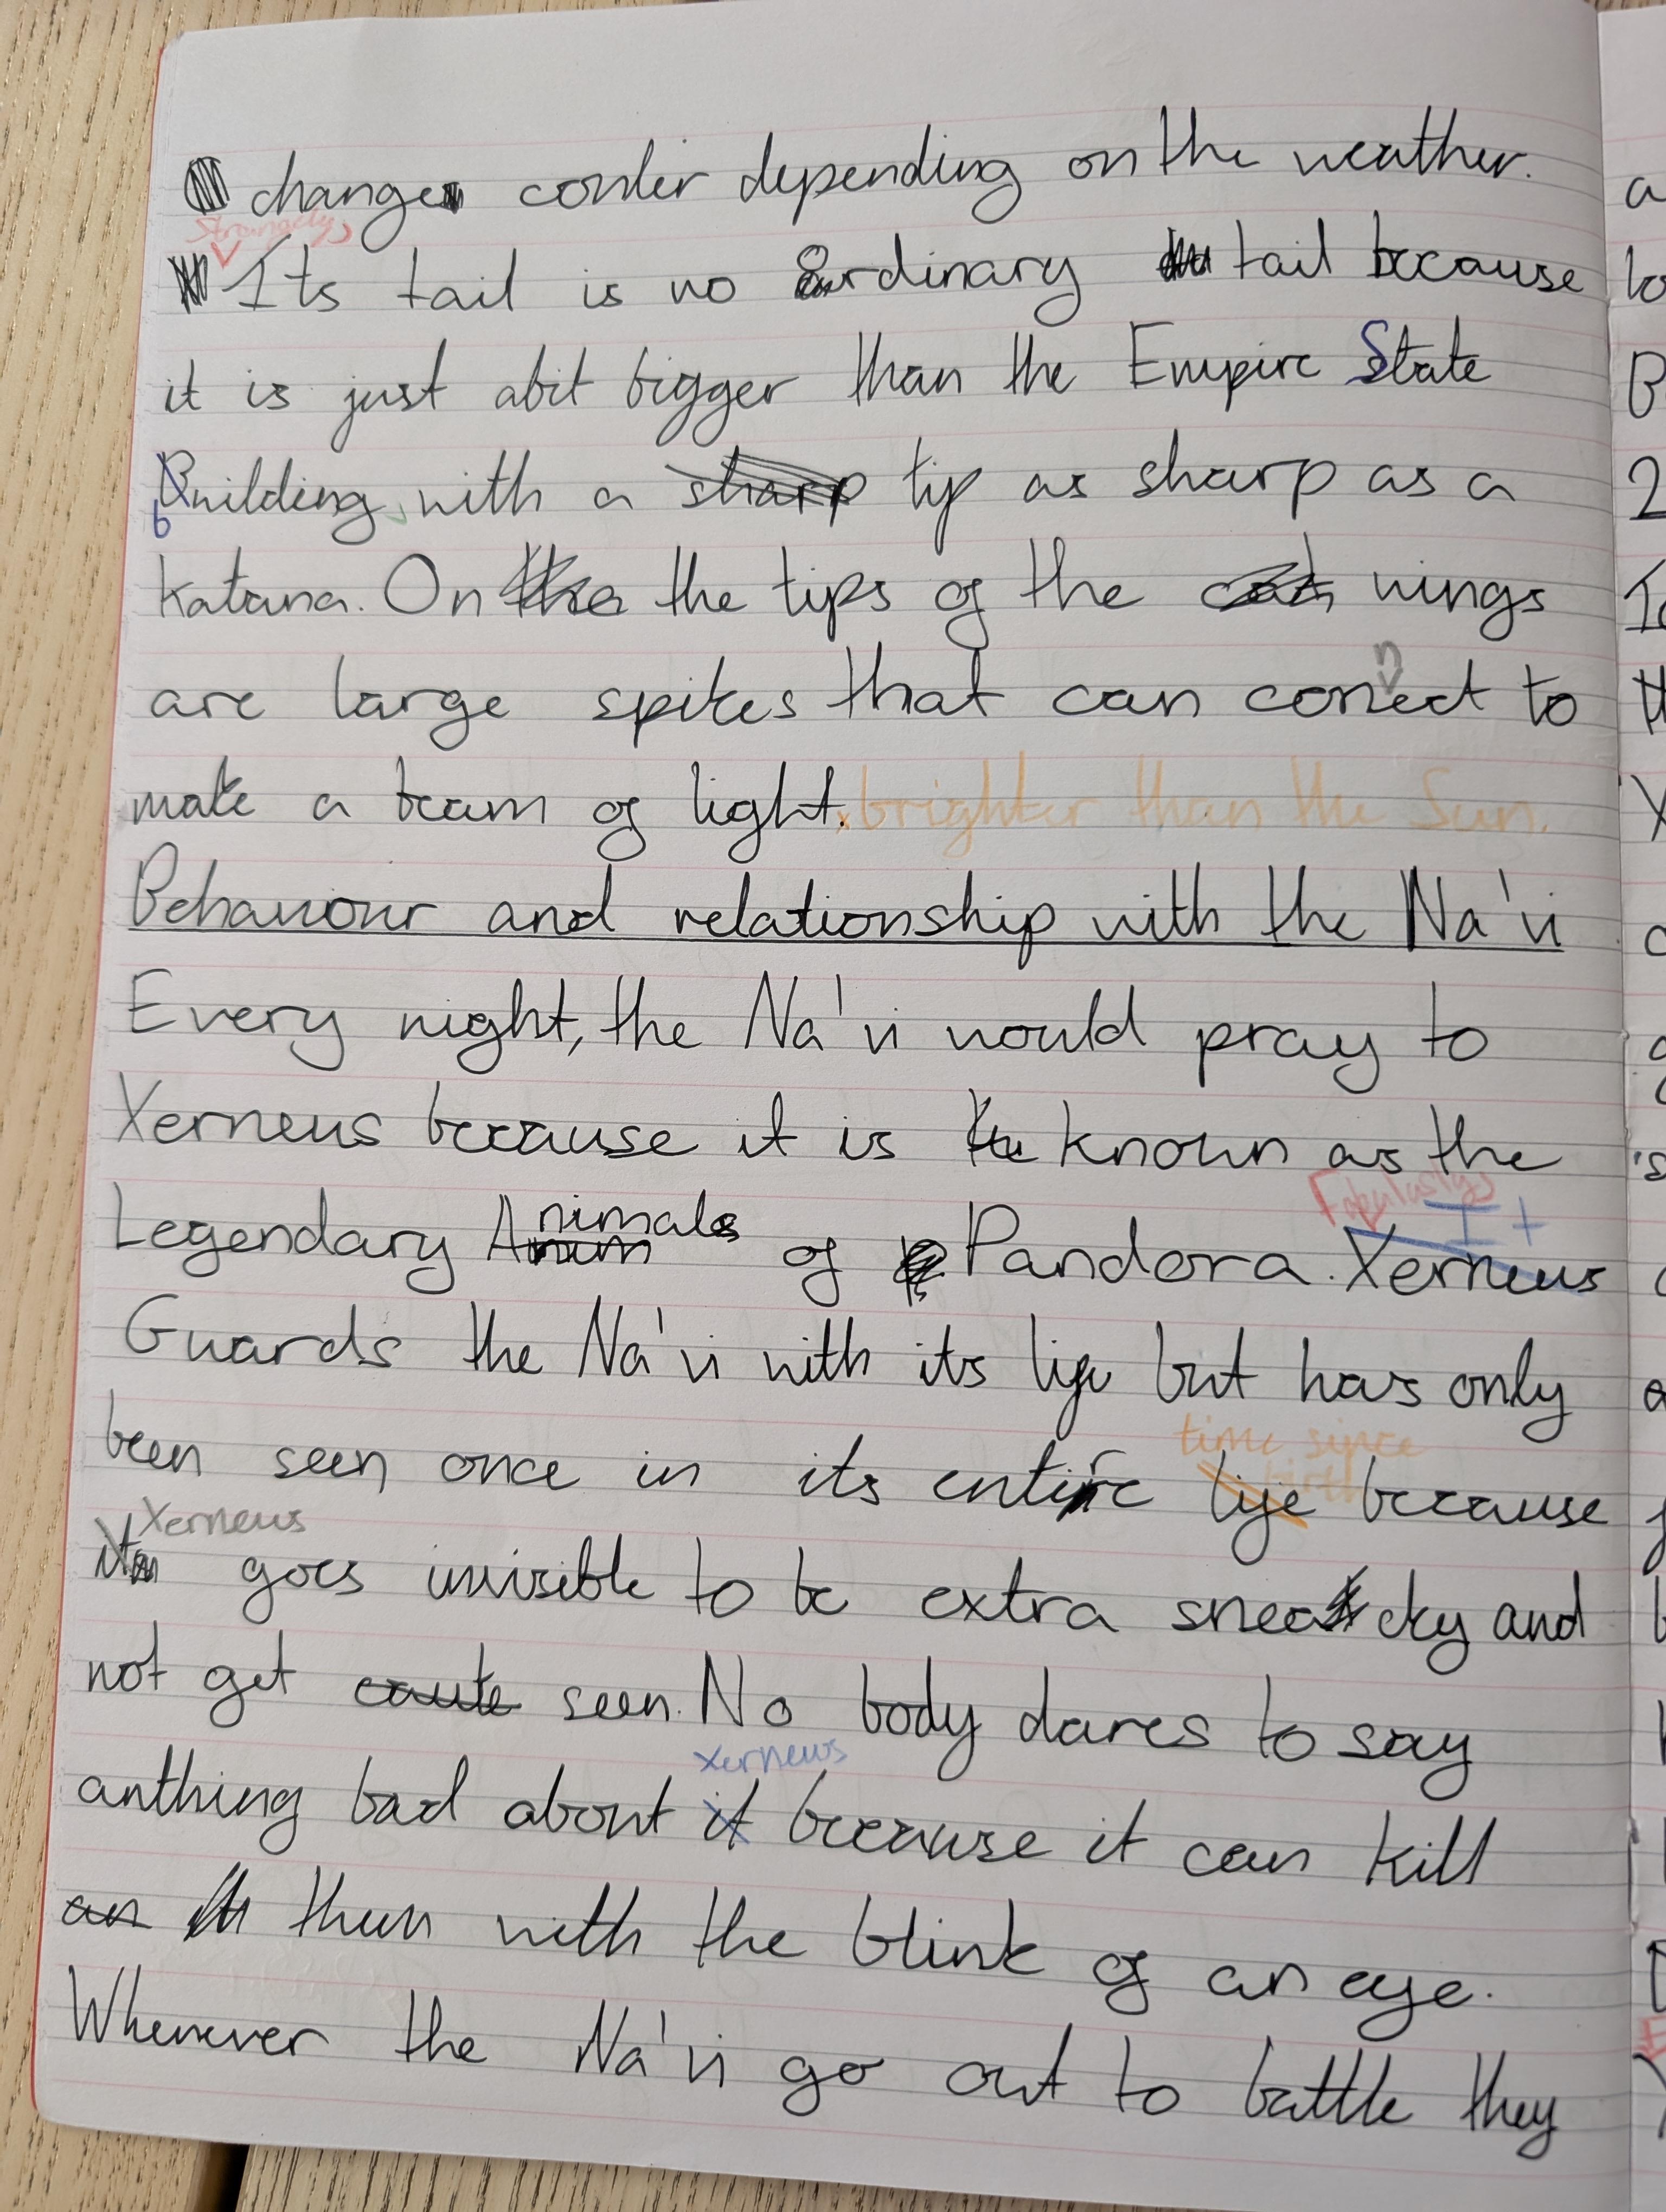 change couler depending on the weather.
Strangely,
Its tail is no ordinary tail because
it is just abit bigger than the Empire State
building, with a sharp tip as sharp as a
katana. On the the tips of the wings
are large spikes that can connect to
make a beam of light, brighter than the Sun.
Behaviour and relationship with the Na'vi
Every night, the Na'vi would pray to
Xerneus because it is known as the
Legendary Animals of Pandora. Xerneus
Fabulasly, It
Guards the Na'vi with its life but has only
been seen once in its entire life because
time since birth
Xerneus goes invisible to be extra sneacky and
not get caute seen. No body dares to say
anthing bad about it because it can kill
Xerneus
an them with the blink of an eye.
Whenever the Na'vi go out to battle they